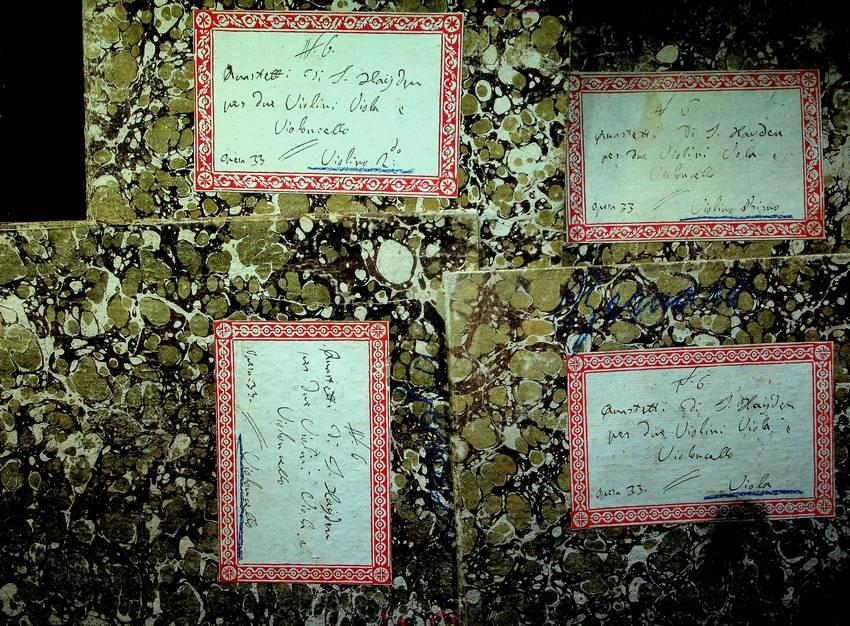 N. 6
Quartetti di S. Hayden
per due Violini Viola e
Violoncello
Opera 33
Violino 2.do
N 6
Quartetti Di S. Hayden
per due Violini Viola e
Violoncello
Opera 33
Violino Primo
N 6
Quartetti Di S. Hayden
per due Violini Viola e
Violoncello
Opera 33.
Violoncello
N. 6
Quartetti Di S. Hayden
per due Violini Viola e
Violoncello
Opera 33.
Viola